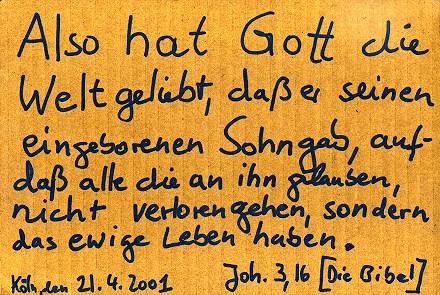 Also hat Gott die
Welt geliebt, daß er seinen
eingeborenen Sohn gab, auf-
daß alle die an ihn glauben,
nicht verlorengehen, sondern
das ewige Leben haben.
Köln, den 21.4.2001 Joh. 3,16 [Die Bibel]